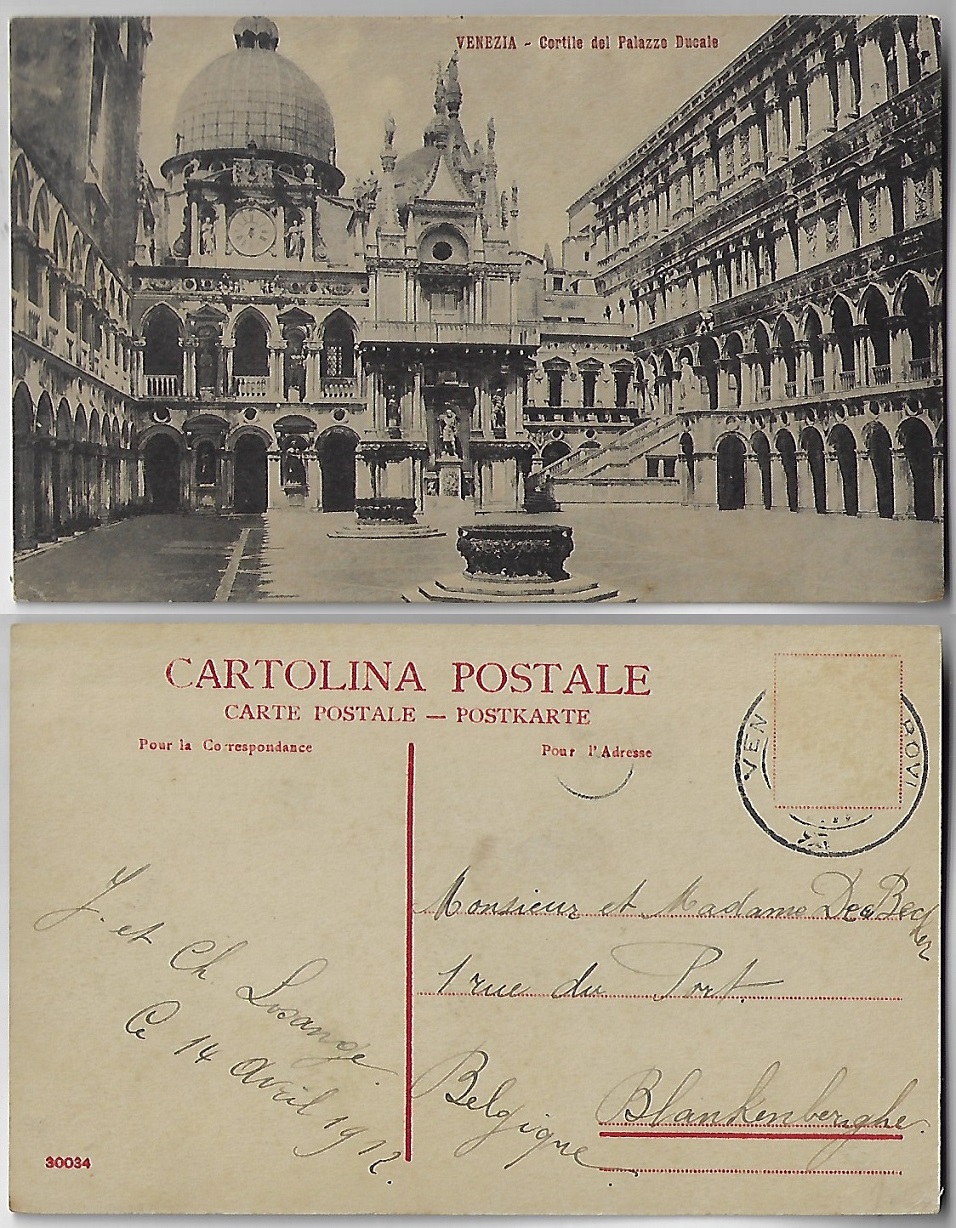 VENEZIA - Cortile del Palazzo Ducale
CARTOLINA POSTALE
CARTE POSTALE — POSTKARTE
Pour la Correspondance
Pour l'Adresse
VEN
ROVI
Monsieur et Madame De Becker
1 rue du Port.
Blankenberghe.
Belgique
J. et Ch. Losange
Ce 14 Avril 1912.
30034